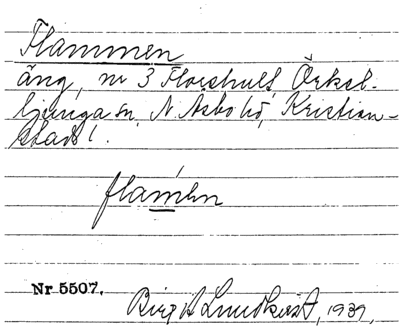 Flammen
äng, nr 3 Floshult, Örkel-
ljunga sn, N. Åsbo hd, Kristian-
stads l.
flamen
Nr 5507.
Birgit Lundkvist, 1939.